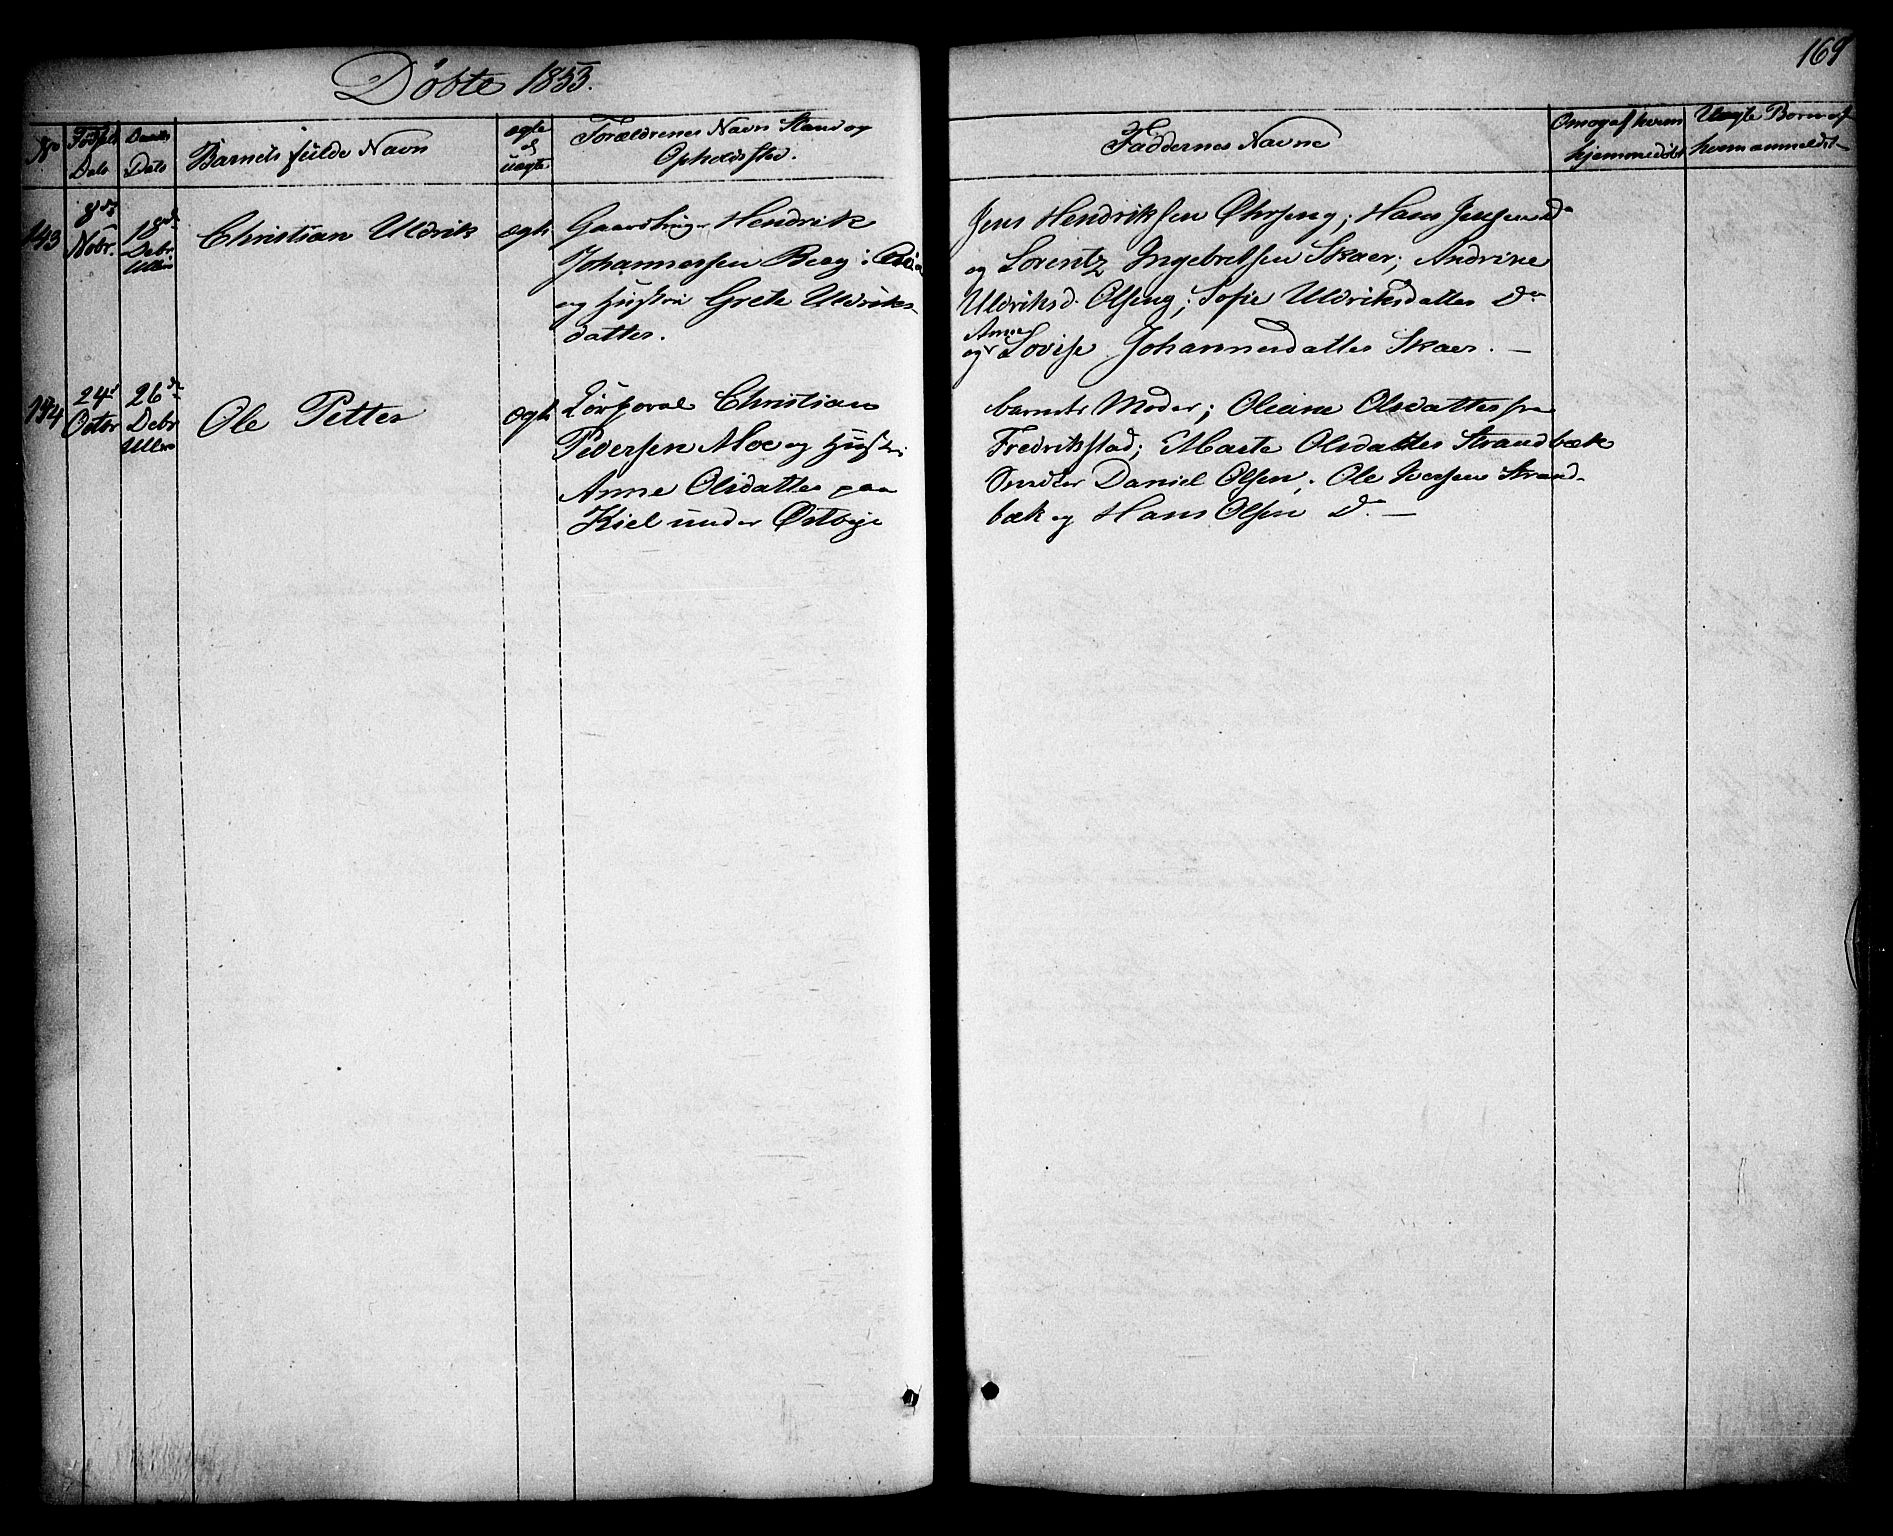 Døbte 1853.
169
No
Fødsels
Dato
Daabs
Dato
Barnets fulde Navn
ægte
el
uægte
Forældrenes Navn Stand og
Opholdssted.
Faddernes Navne
Om og af hvem
hjemmedøbt
Uægte Børn af
hvem anmeldt
143
8de
Novbr.
18de
Debr
Christian Uldrik
ægte
Gaardbruger Hendrik
Johannessen Berg i
og Hustru Grete Uldriks-
datter.
Jens Hendriksen ; Hans Jensen Do
og Lorentz Ingebretsen Skaer; Andrine
Uldriksd. Olseng; Sofie Uldriksdatter Do
og Anne Lovise Johannesdatter Skaer. —
144
24de
Octbr
26de
Debr
Ole Petter
ægte
Corporal Christian
Pedersen Moe og Hustru
Anne Olsdatter paa
Kiel under Østbye
barnets Moder; Oleane Olsdatter fra
Fredrikstad; Marte Olsdatter Strandbæk
Daniel Olsen, Ole Iversen Strand-
bæk og Hans Olsen Do —